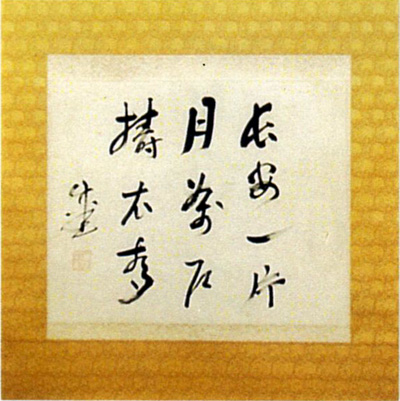 長安一片
月萬戸
擣衣聲